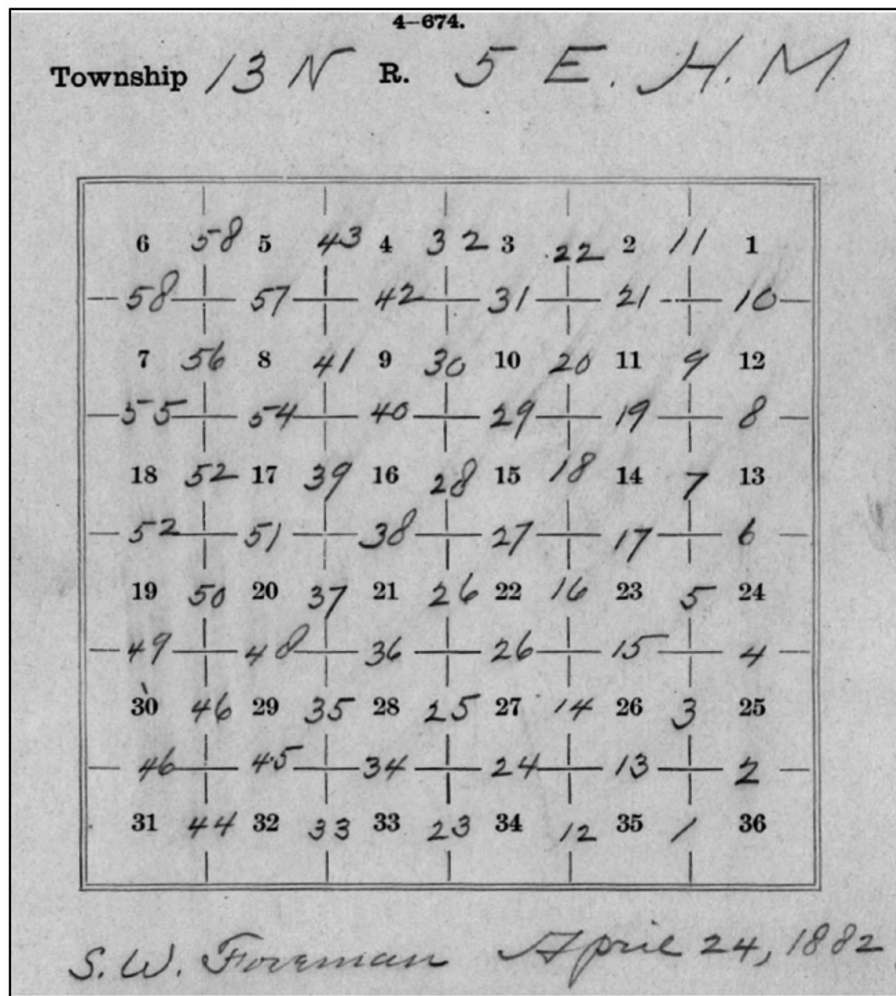 4—674.
Township 13 N R. 5 E. H. M
6 58 5 43 4 32 3 22 2 11 1
58 57 42 31 21 10
7 56 8 41 9 30 10 20 11 9 12
55 54 40 29 19 8
18 52 17 39 16 28 15 18 14 7 13
52 51 38 27 17 6
19 50 20 37 21 26 22 16 23 5 24
49 48 36 26 15 4
30 46 29 35 28 25 27 14 26 3 25
46 45 34 24 13 2
31 44 32 33 33 23 34 12 35 1 36
S. W. Foreman April 24, 1882